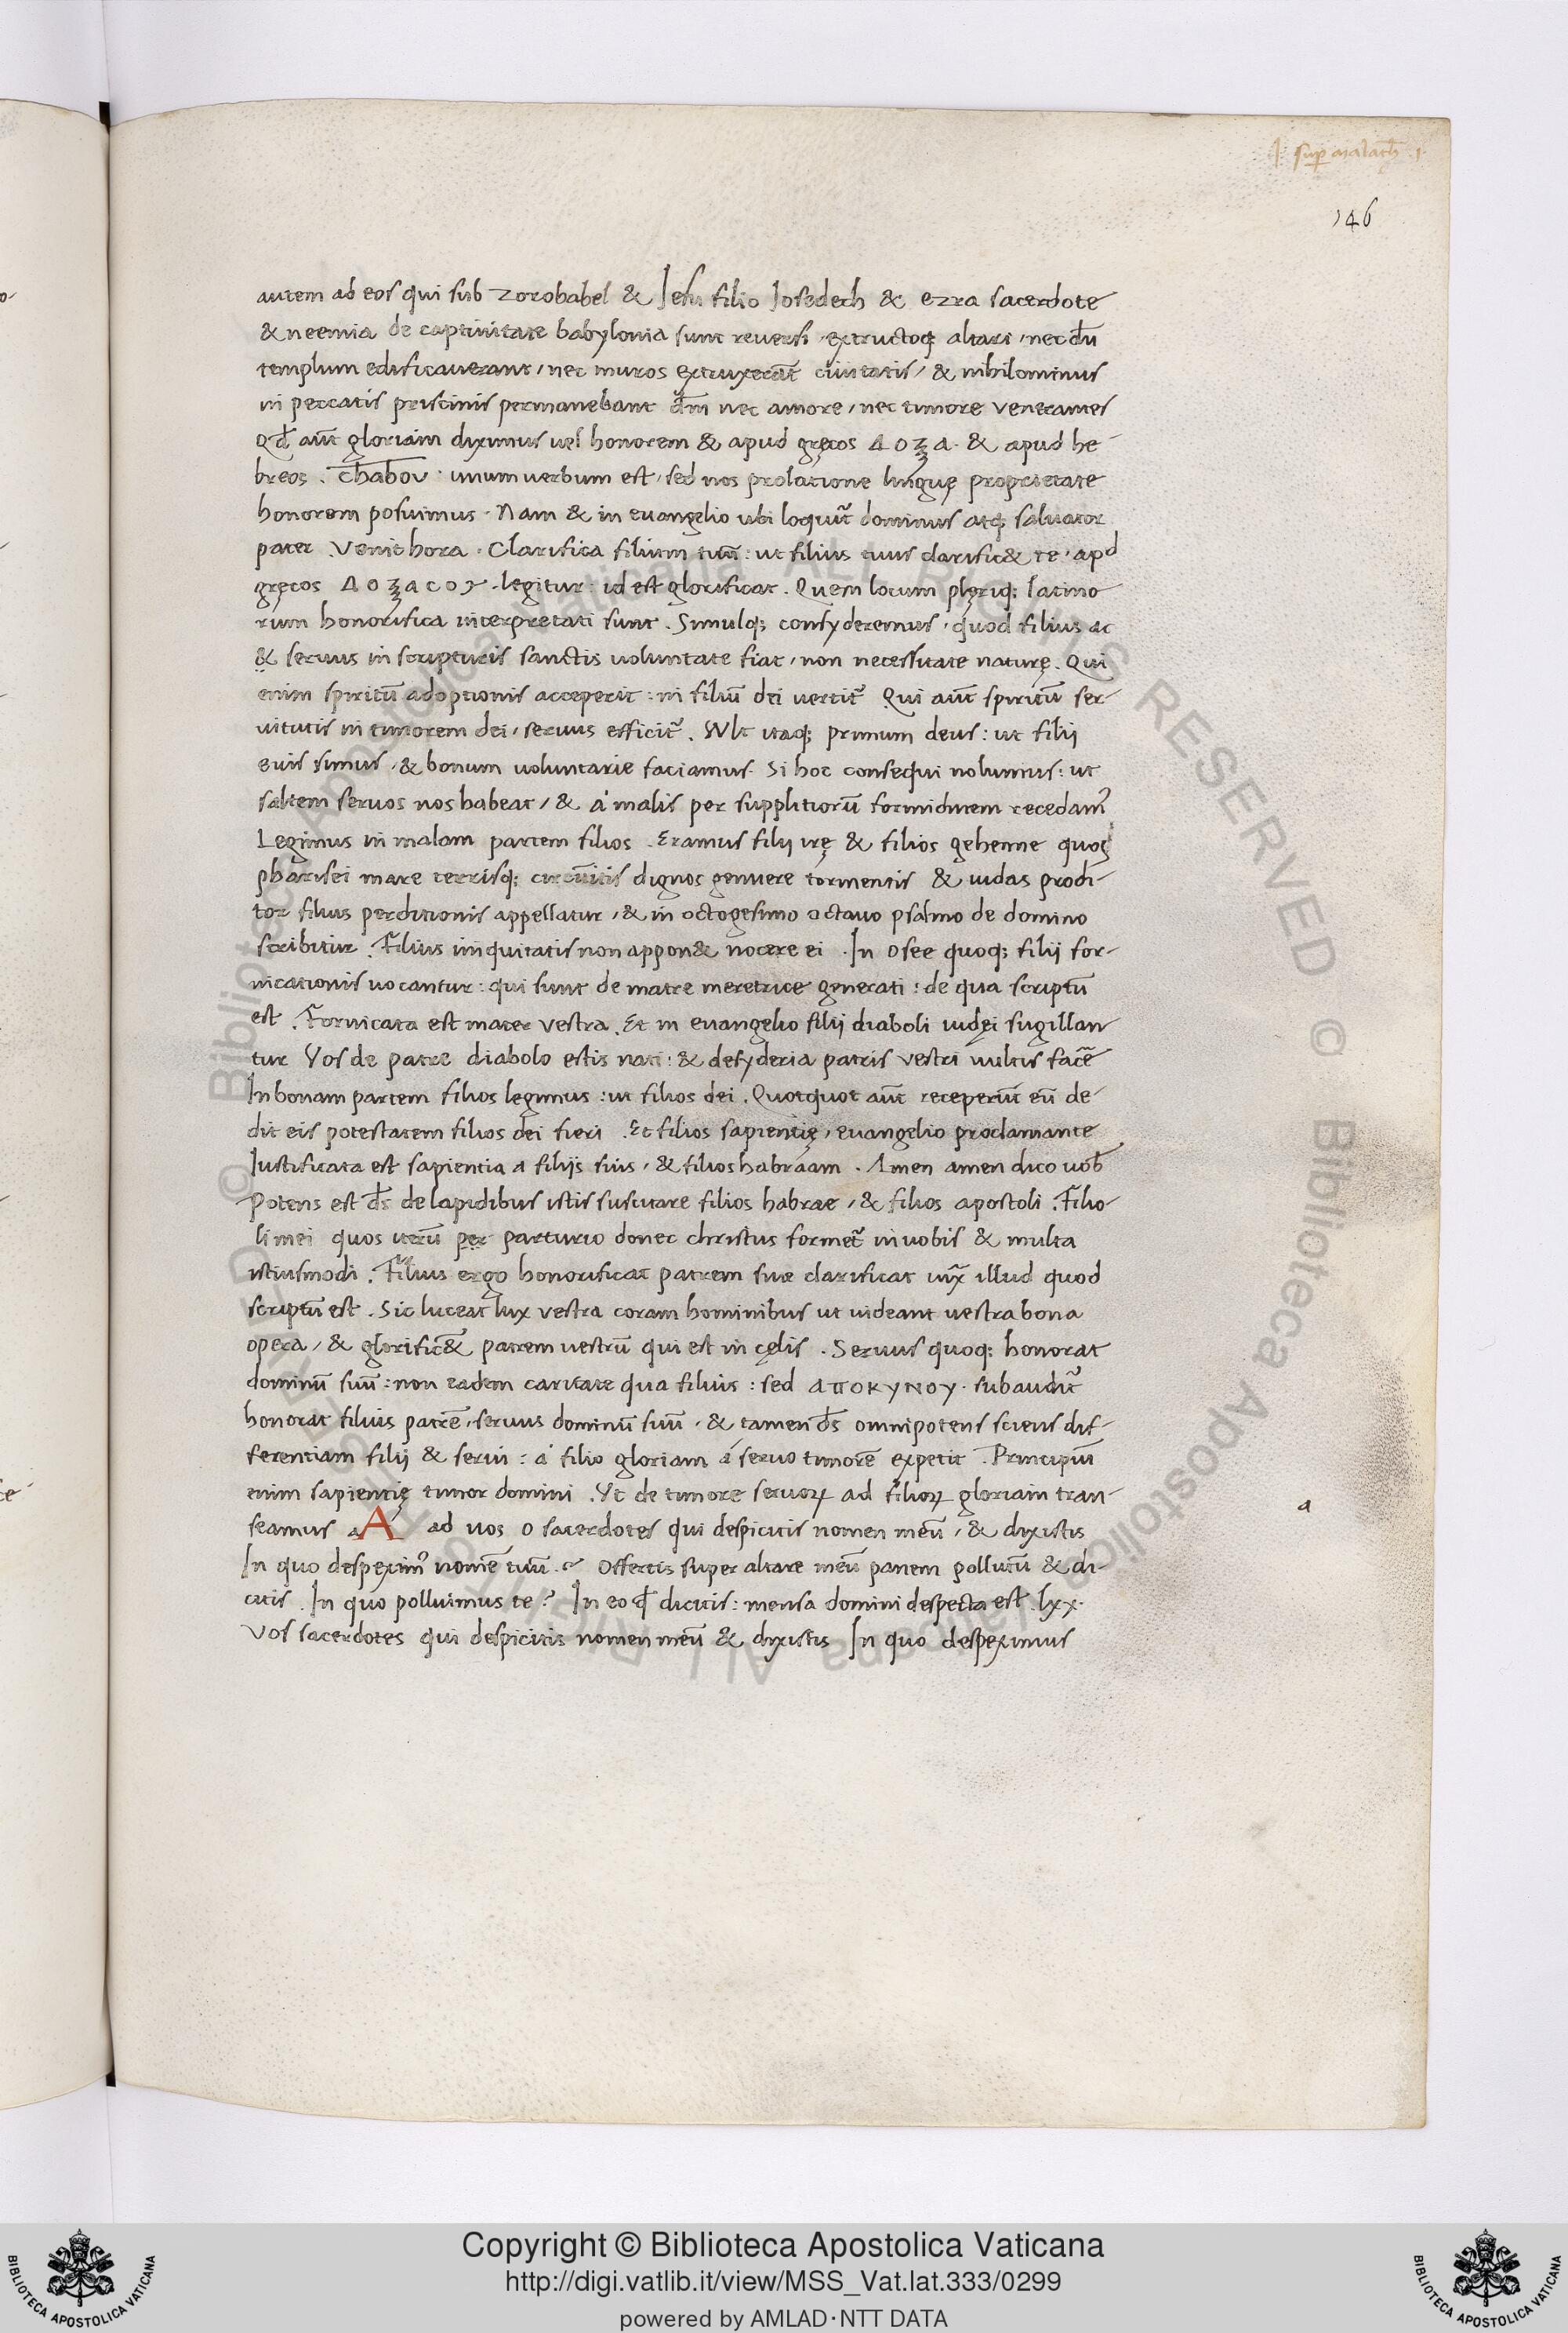 I sup malach .1.
146
autem ad eos qui sub Zorobabel & Iesu filio Iosedech & ezra sacerdote
& neemia de captiuitate babylonia sunt reuersi, extructoq; altari, nec dū
templum edificauerant, nec muros extruxerāt ciuitatis, & nihilominus
in peccatis pristinis permanebant dm̄ nec amore, nec timore venerantes
Qd̄ aūt gloriam diximus uel honorem & apud gręcos ΔΟΞΑ. & apud he-
breos. Chabov. unum uerbum est, sed nos prolatione linguę proprietate
honorem posuimus. Nam & in euangelio ubi loquit̄ dominus atq; saluator
pater. Venit hora. Clarifica filium tuū: ut filius tuus clarific& te. apd
gręcos ΔΟΞΑϹΟΥ. legitur: id est glorificat. Quem locum plęriq; latino
rum honorifica interpretati sunt. Simulq; consyderemus, quod filius ac
& seruus in scripturis sanctis voluntate fiat, non necessitate naturę. Qui
enim spiritū adoptionis acceperit: in filiū dei uertit̄ Qui aūt spiritū ser-
uitutis in timorem dei, seruus efficit̄. Vult itaq; primum deus: ut filij
euis simus, & bonum voluntarie faciamus. Si hoc consequi nolumus: ut
saltem servos nos habeat, & á malis per supplitiorū formidinem recedam9
Legimus in malam partem filios. Eramus filij irę & filios gehenne quos
pharisei mare terrisq; circūitis dignos genuere tormentis & iudas prodi-
tor filius perditionis appellatur, & in octogesimo octauo psalmo de domino
scribitur. Filius iniquitatis non appon& nocere ei. In osee quoq; filij for-
nicationis uocantur: qui sunt de matre meretrice generati: de qua scriptū
est. Fornicata est mater vestra. Et in euangelio filij diaboli iudęi sugillan
tur Vos de patre diabolo estis nati: & desyderia patris vestri uultis facē
In bonam partem filios legimus: ut filios dei. Quotquot aūt receperūt eū de-
dit eis potestatem filios dei fieri. Et filios sapientię, euangelio proclamante
Iustificata est sapientia a filijs suis, & filios habraam. Amen amen dico uob̄
Potens est d̄s de lapidibus istis suscitare filios habrae, & filios apostoli. Filio-
li mei quos iterū per parturio donec christus formet̄ in uobis & multa
istiusmodi. Filius ergo honorificat patrem siue clarificat iux̄ illud quod
scriptū est. Sic luceat lux vestra coram hominibus ut uideant uestra bona
opera, & glorific& patrem uestrū qui est in cęlis. Seruus quoq; honorat
dominū suū: non eadem caritate qua filius: sed ΑΠΟΚΥΝΟΥ. subaudit̄
honorat filius patrē, seruus dominū suū, & tamen d̄s omnipotens sciens dif-
ferentiam filij & serui: á filio gloriam á seruo timorē expetit. Principiū
enim sapientię timor domini. Vt de timore seruoꝝ ad filioꝝ gloriam tran-
a
seamus aA ad uos o sacerdotes qui despicitis nomen meū, & dixistis
In quo despexim9 nomē tuū.? Offertis super altare meū panem pollutū & di-
citis. In quo polluimus te? In eo qd̄ dicitis: mensa domini despecta est. lxx.
Vos sacerdotes qui despicitis nomen meū & dixistis In quo despeximus
Copyright © Biblioteca Apostolica Vaticana
http://digi.vatlib.it/view/MSS_Vat.lat.333/0299
powered by AMLAD·NTT DATA